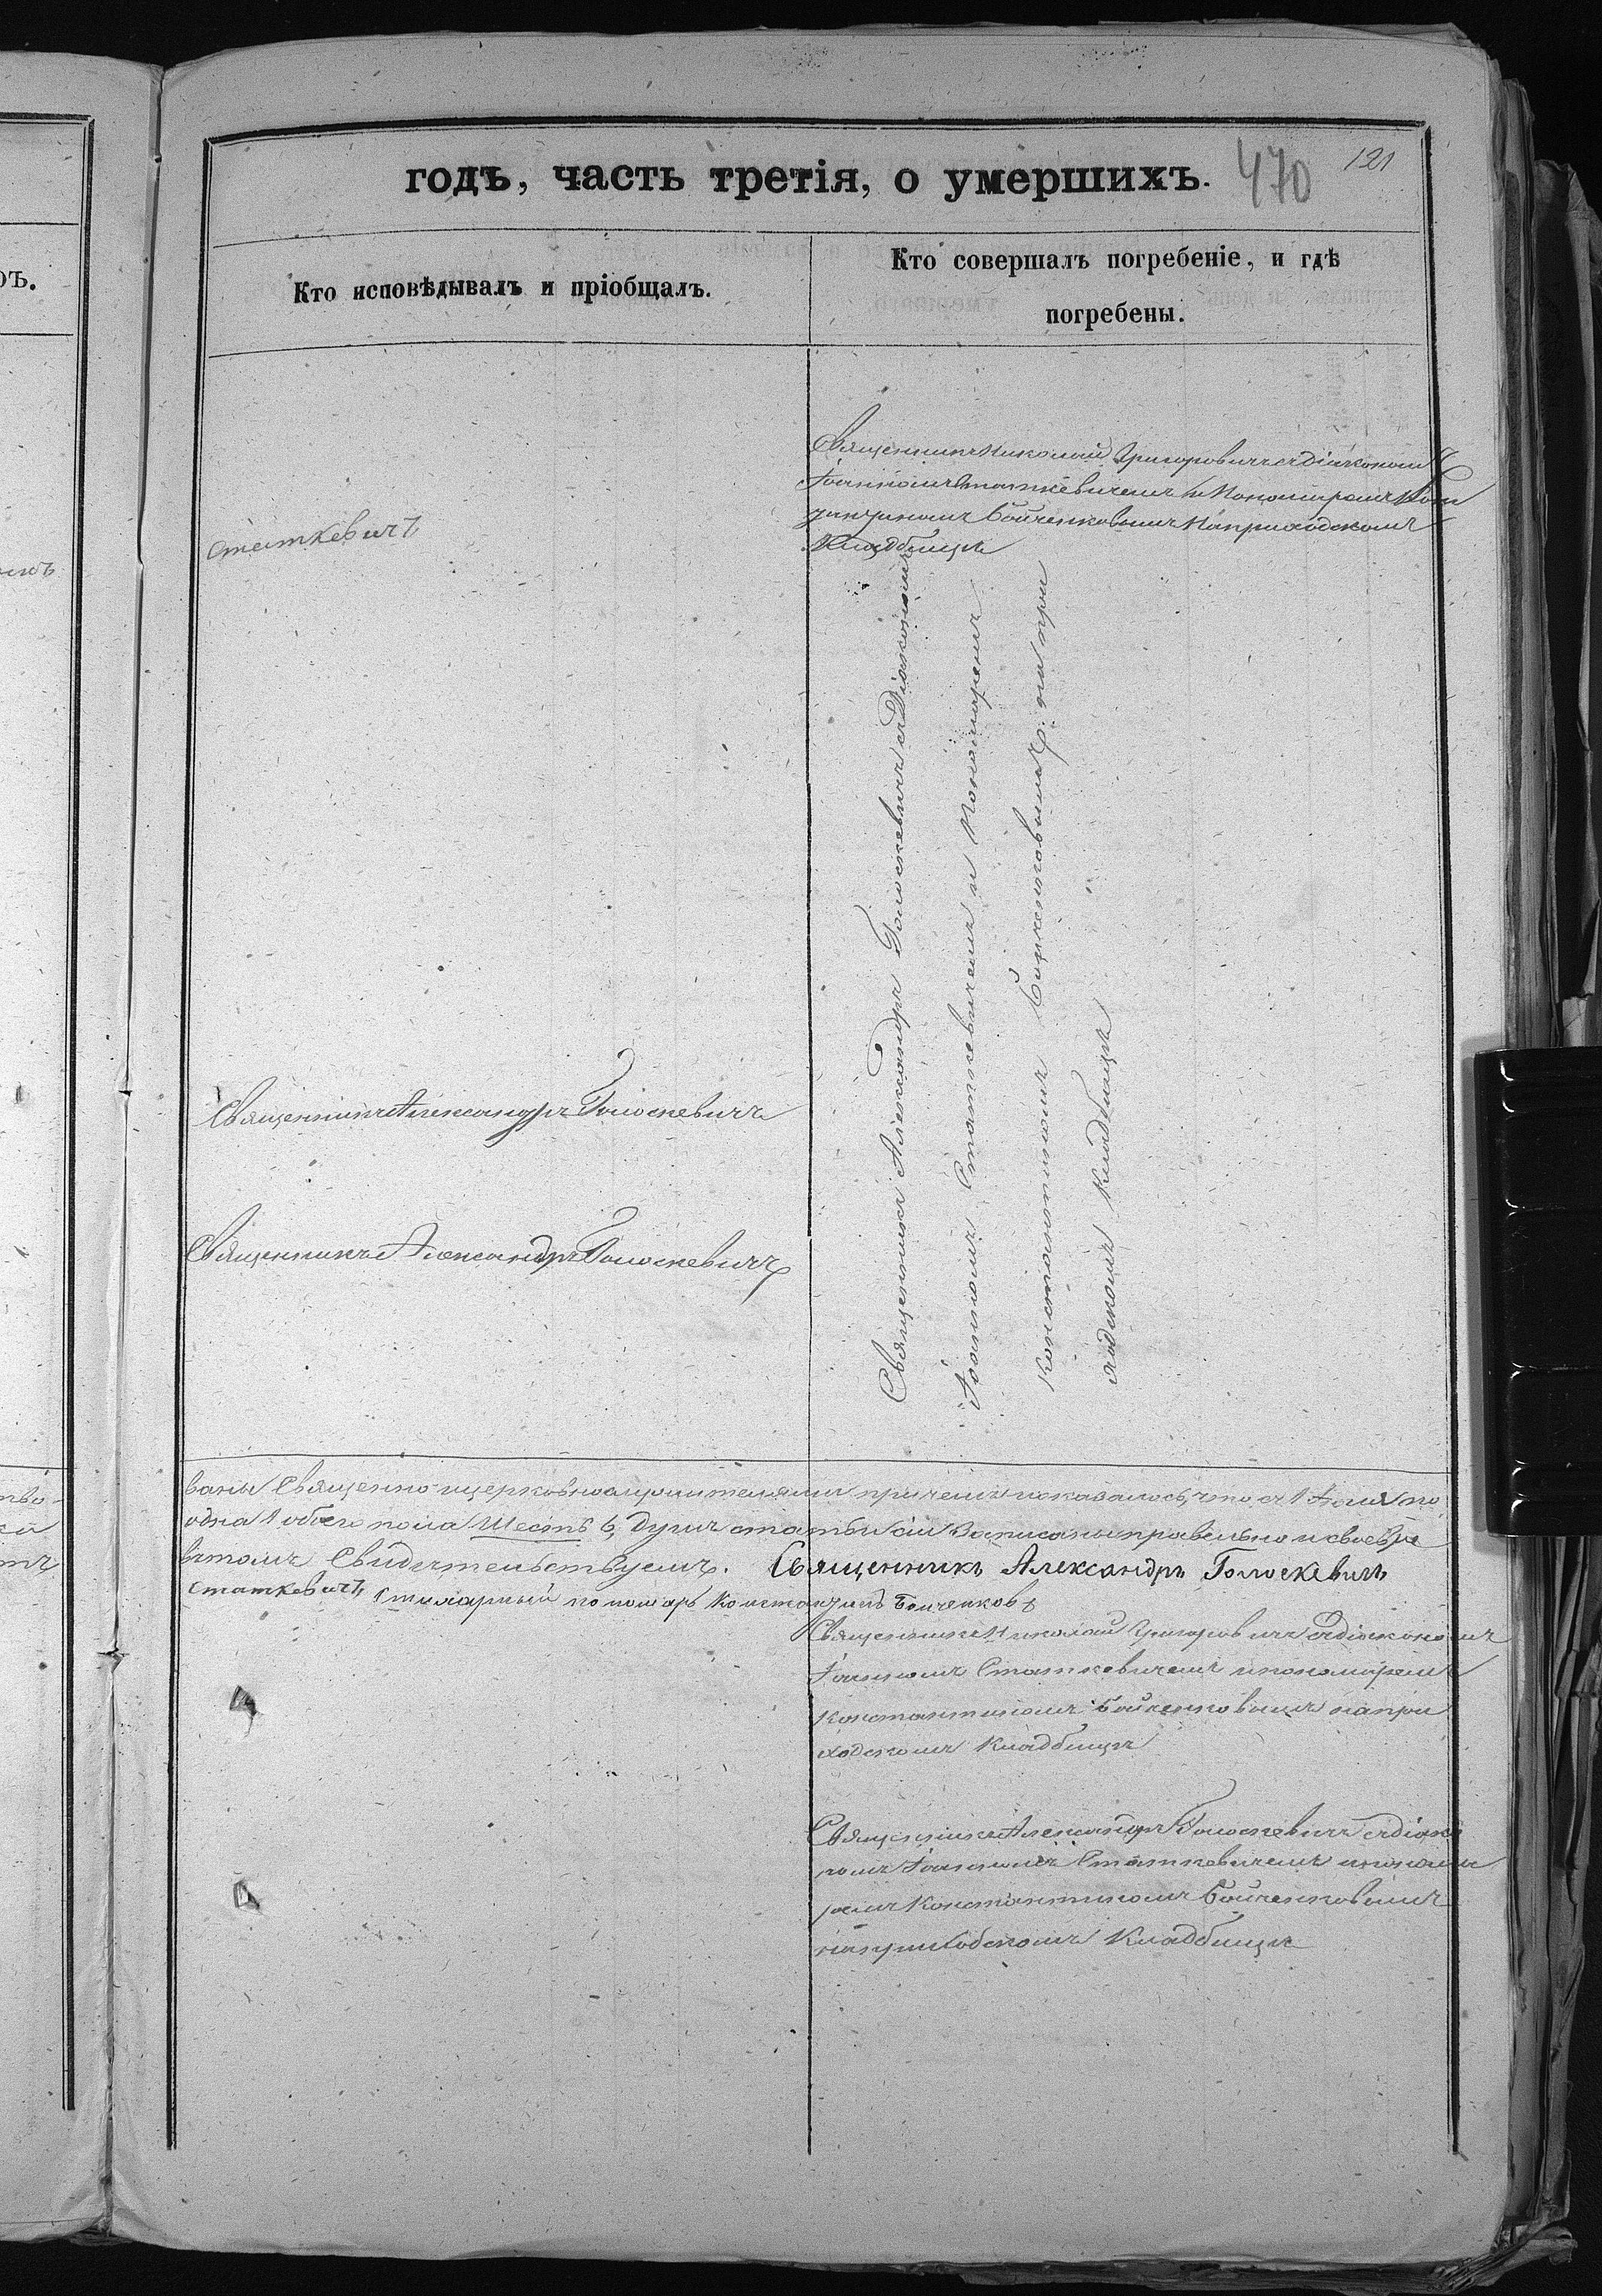 годъ, часть третія, о умершихъ.
470
121
ръ.
Кто исповѣдывалъ и пріобщалъ.
Кто совершалъ погребеніе, и гдѣ
погребены.
Священникъ Николай Григоровичъ съ Діакономъ
Іоанномъ Статкевичемъ и Пономаремъ Кон
стантиномъ Бойченковымъ на приходскомъ
Кладбищѣ
Статкевичъ
Священникъ Александръ Голоскевичъ съ Діакономъ
Іоанномъ Статкевичемъ и Пономаремъ
Константиномъ Бойченковымъ на при
ходскомъ Кладбищѣ
Священникъ Александръ Голоскевичъ
Священникъ Александръ Голоскевичъ
ваны Священно-церковнослужителями при чемъ оказалось, что съ 1 Іюля по
одна 1 обоего пола Шесть 6, душъ статьи сіи Записаны правельно и своевре
въ томъ Свидѣтельствуемъ. Священникъ Александръ Голоскевичъ
Статкевичъ, пономарь Константинъ Бойченковъ
Священникъ Николай Григоровичъ съ діакономъ
Іоанномъ Статкевичемъ и пономаремъ
Константиномъ Бойченковымъ на при
ходскомъ Кладбищѣ
Священникъ Александръ Голоскевичъ съ діако
номъ Іоанномъ Статкевичемъ и понома
ремъ Константиномъ Бойченковымъ
на приходскомъ Кладбищѣ